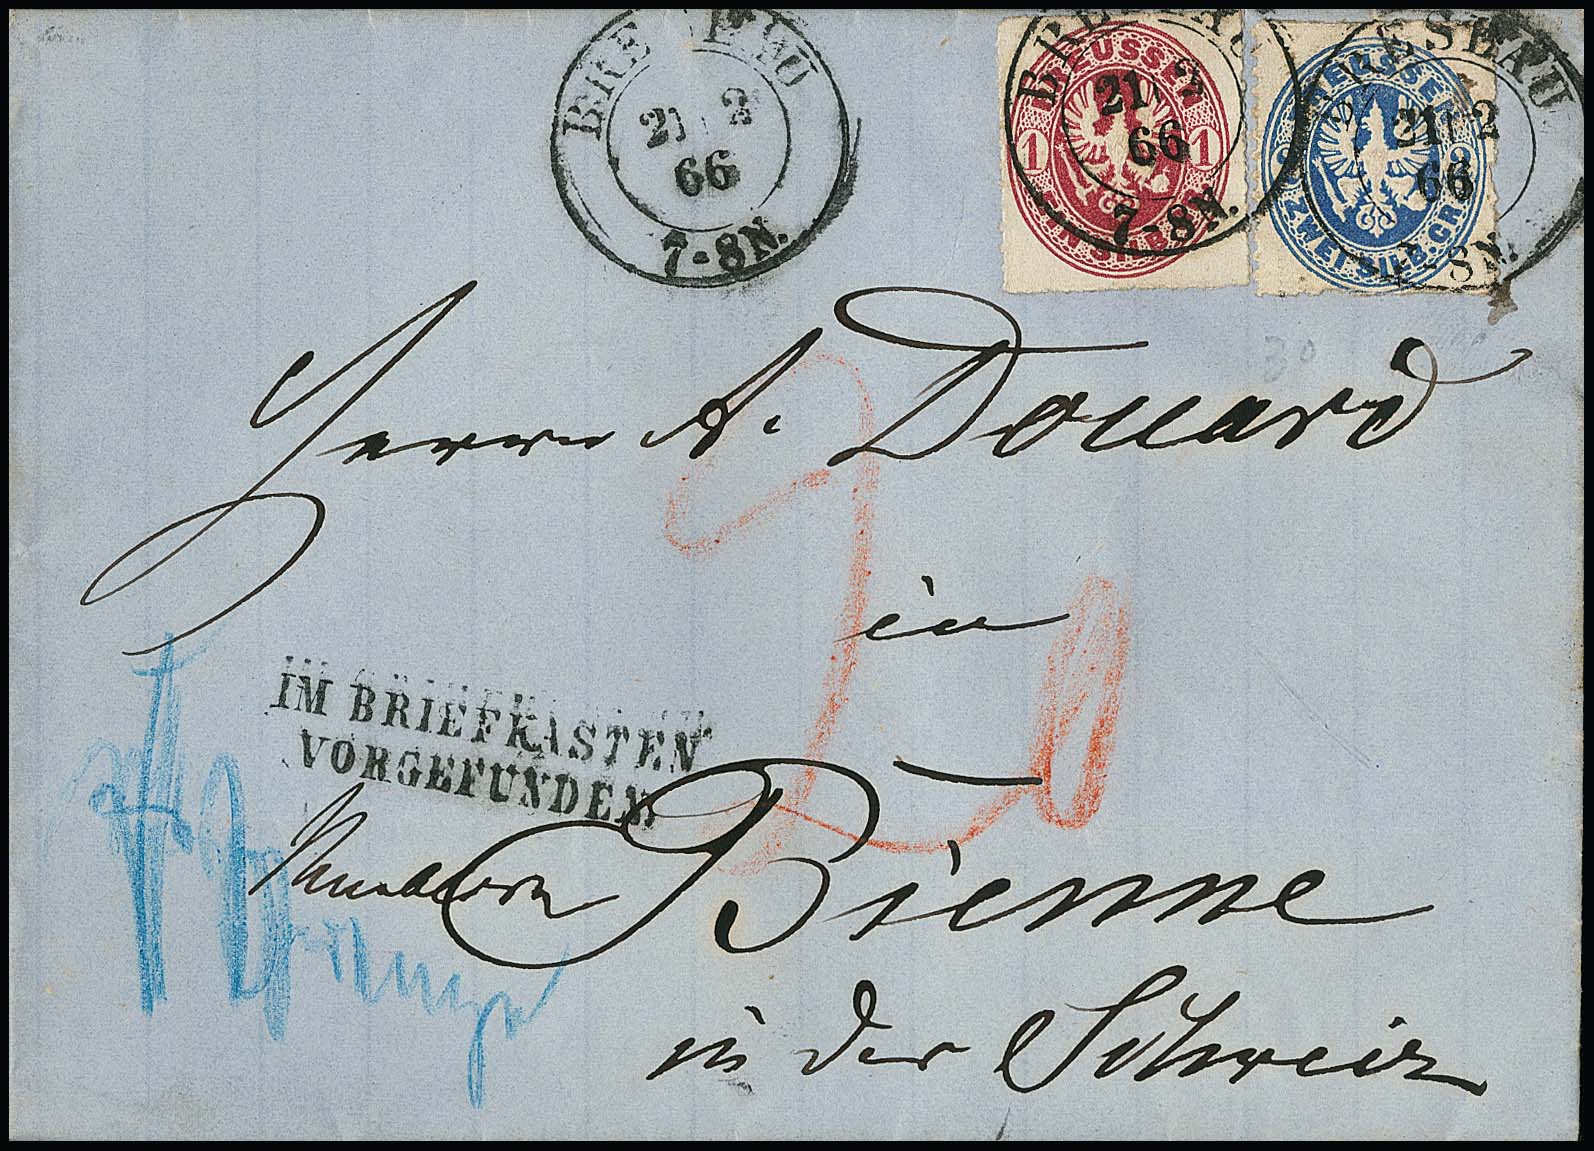 BRESLAU
21 2
66
7-8N.
PREUSSEN
1 1
EIN SILB.GR.
BRESLAU
21 2
66
7-8N.
PREUSSEN
2 2
ZWEI SILB.GR.
BRESLAU
21 2
66
7-8N.
30
Herrn A. Douard
in
IM BRIEFKASTEN
VORGEFUNDEN
Bienne
in der Schweiz